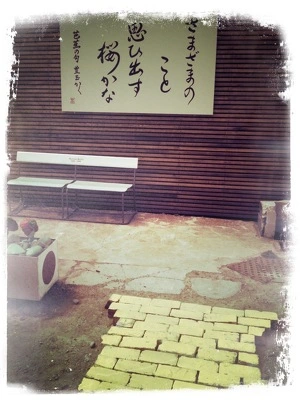 さまざまの
こと
思ひ出す
桜かな
芭蕉の句